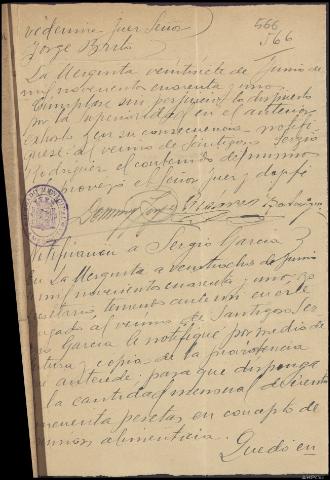 566
566
Juez Señor
Jorge Brito
La Merguita veintisiete de Junio de
mil novecientos cuarenta y uno.
Cumplase sin perjuicio lo dispuesto
por la superioridad en el anterior
exhorto y en su consecuencia notifi-
quese al vecino de Santigoso Sergio
Rodriguez el contenido del mismo
proveyó el Señor juez y doy fe
Notificacion a Sergio Garcia
En La Merguita a veintiocho de Junio
de mil novecientos cuarenta y uno, yo
Secretario, teniendo ante mi
al vecino de Santigoso Ser-
gio Garcia le notifiqué por medio de
lectura y copia de la providencia
que antecede para que disponga
la cantidad mensual de ciento
cincuenta pesetas en concepto de
pension alimenticia.
Quedó en